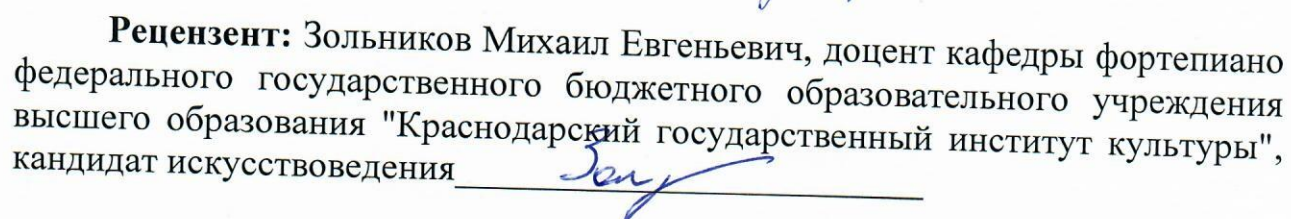 Рецензент: Зольников Михаил Евгеньевич, доцент кафедры фортепиано
федерального государственного бюджетного образовательного учреждения
высшего образования "Краснодарский государственный институт культуры",
кандидат искусствоведения